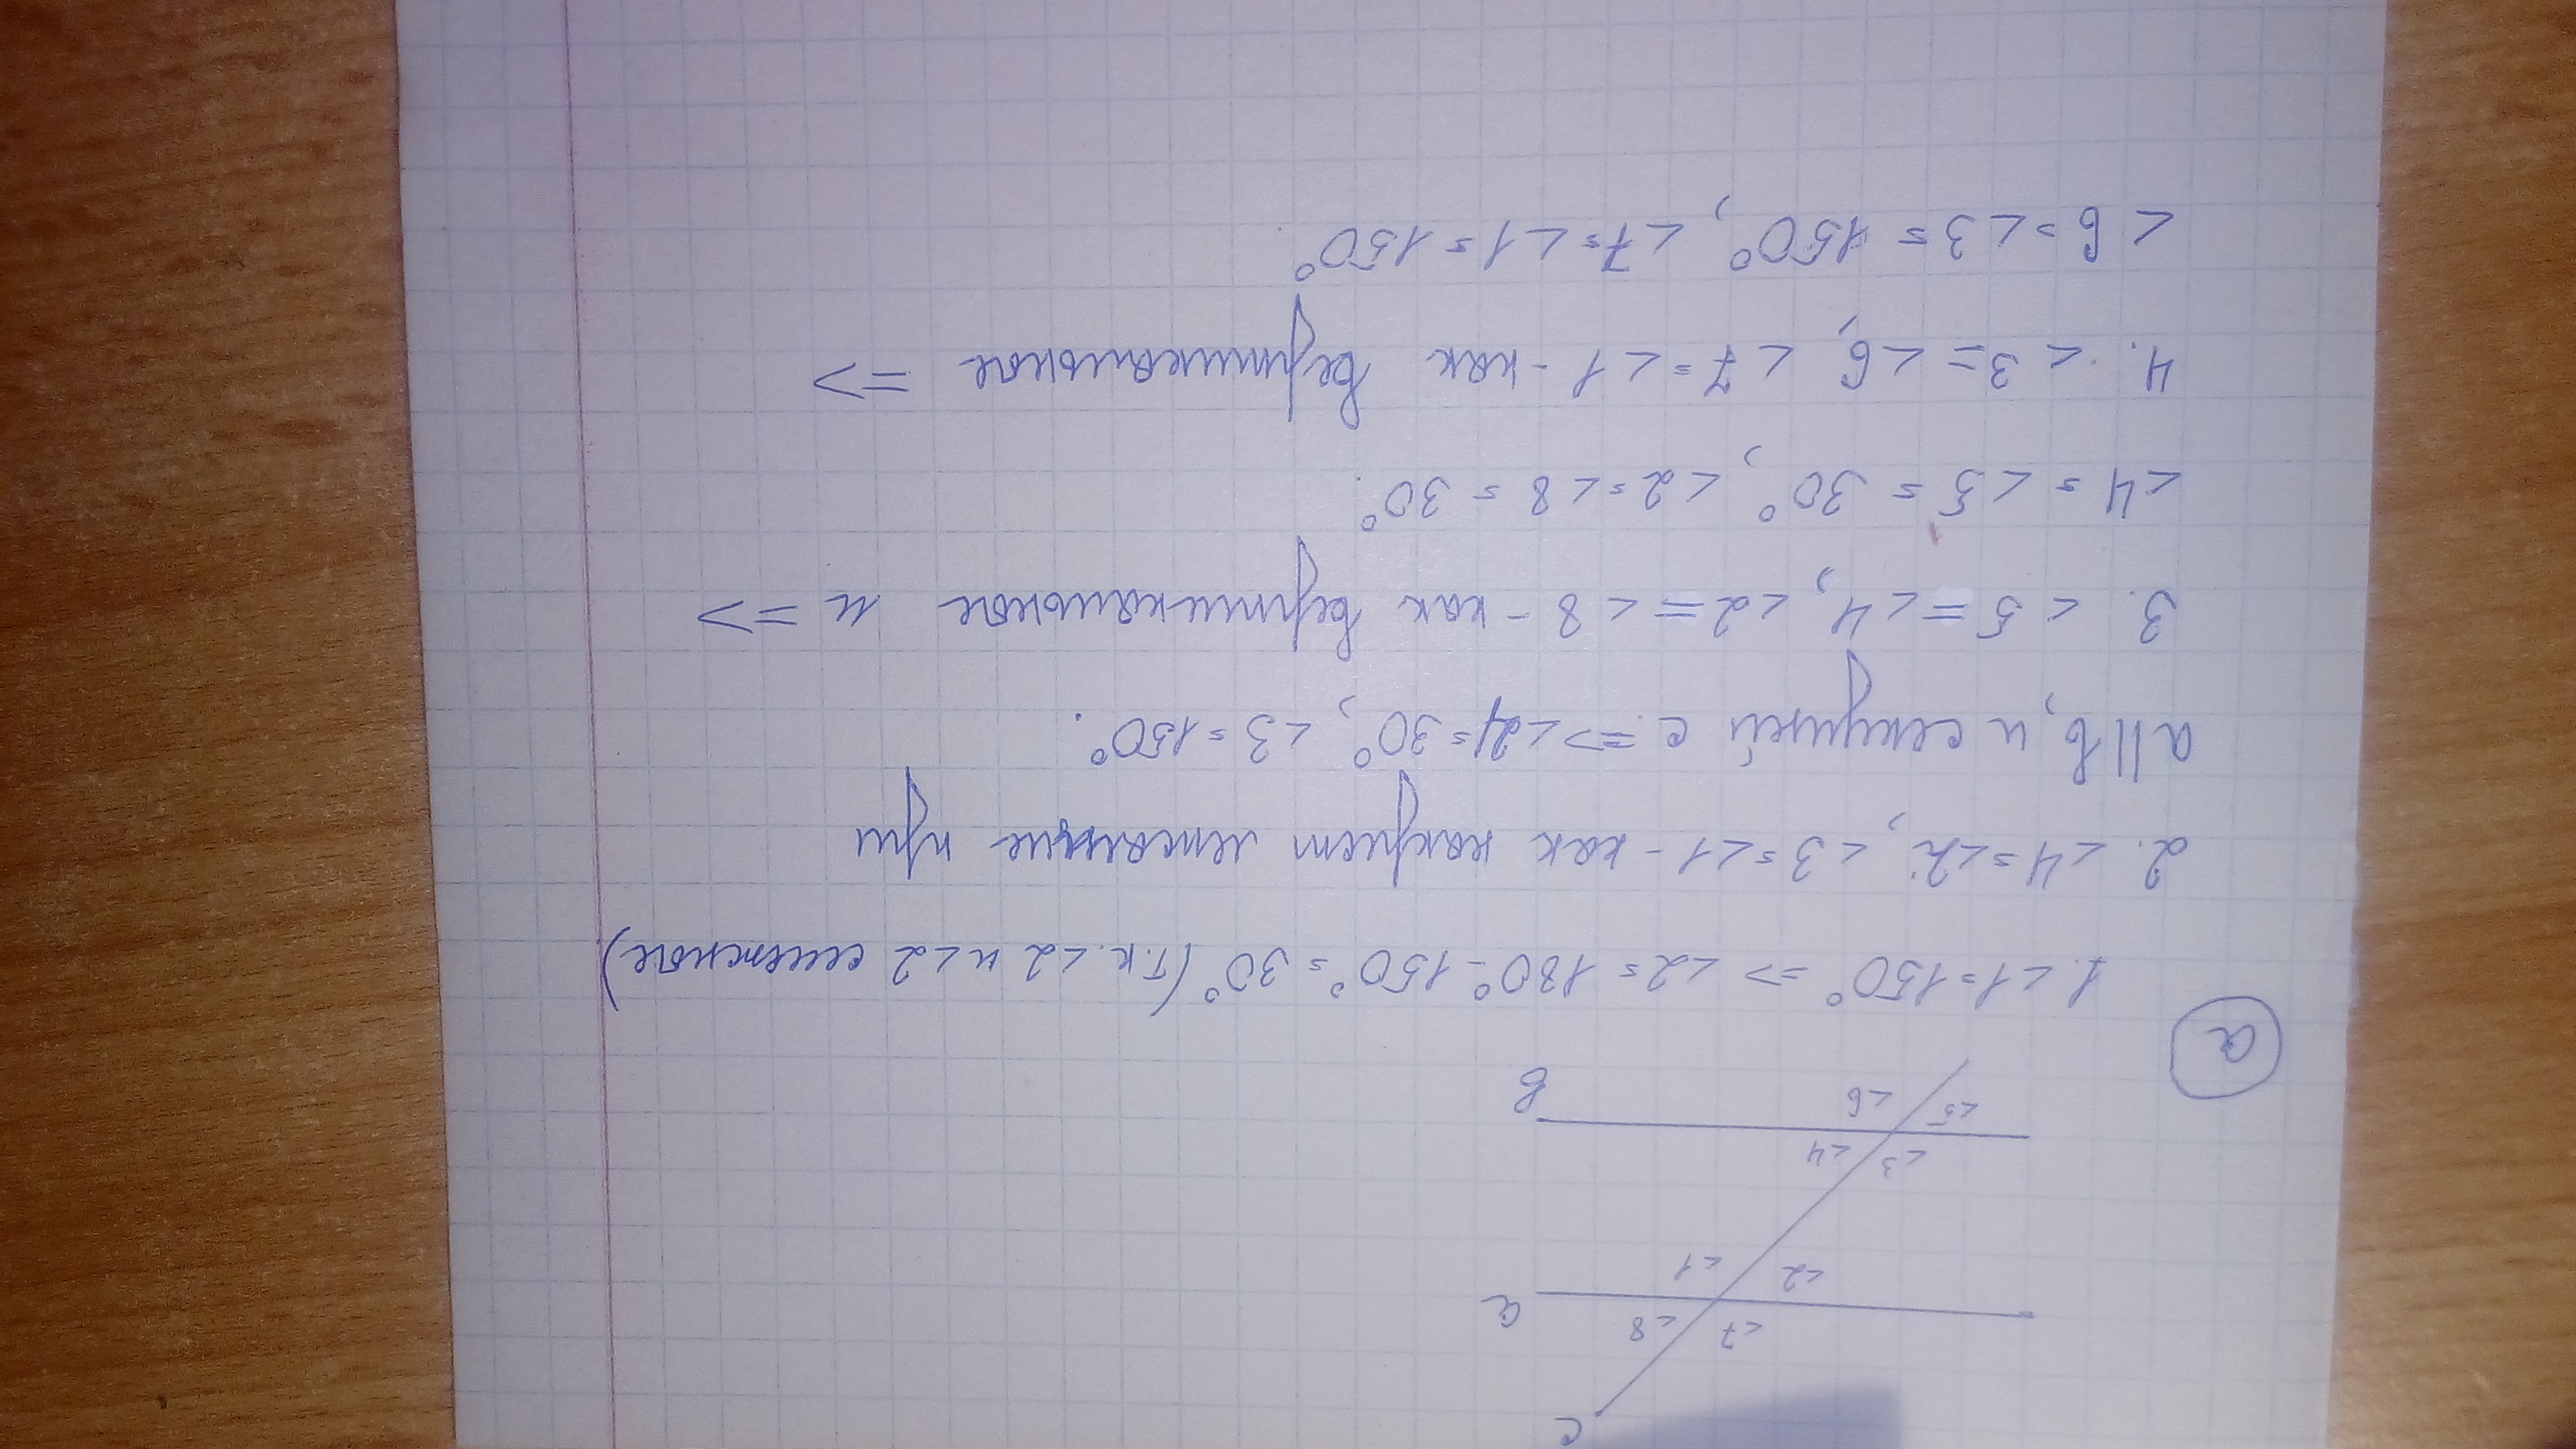 c
<7 <8
a
<2 <1
<3 <4
<5 <6
в
а
1. <1=150° => <2= 180°-150°=30° (т.к. <2 и <2 смежные)
2. <4=<2, <3=<1 - как накрест лежащие при
а||в, и секущей с => <4=30°, <3=150°.
3. <5=<4, <2=<8 - как вертикальные и =>
<4=<5=30°, <2=<8=30°.
4. <3=<6, <7=<1 - как вертикальные =>
<6=<3=150°, <7=<1=150°